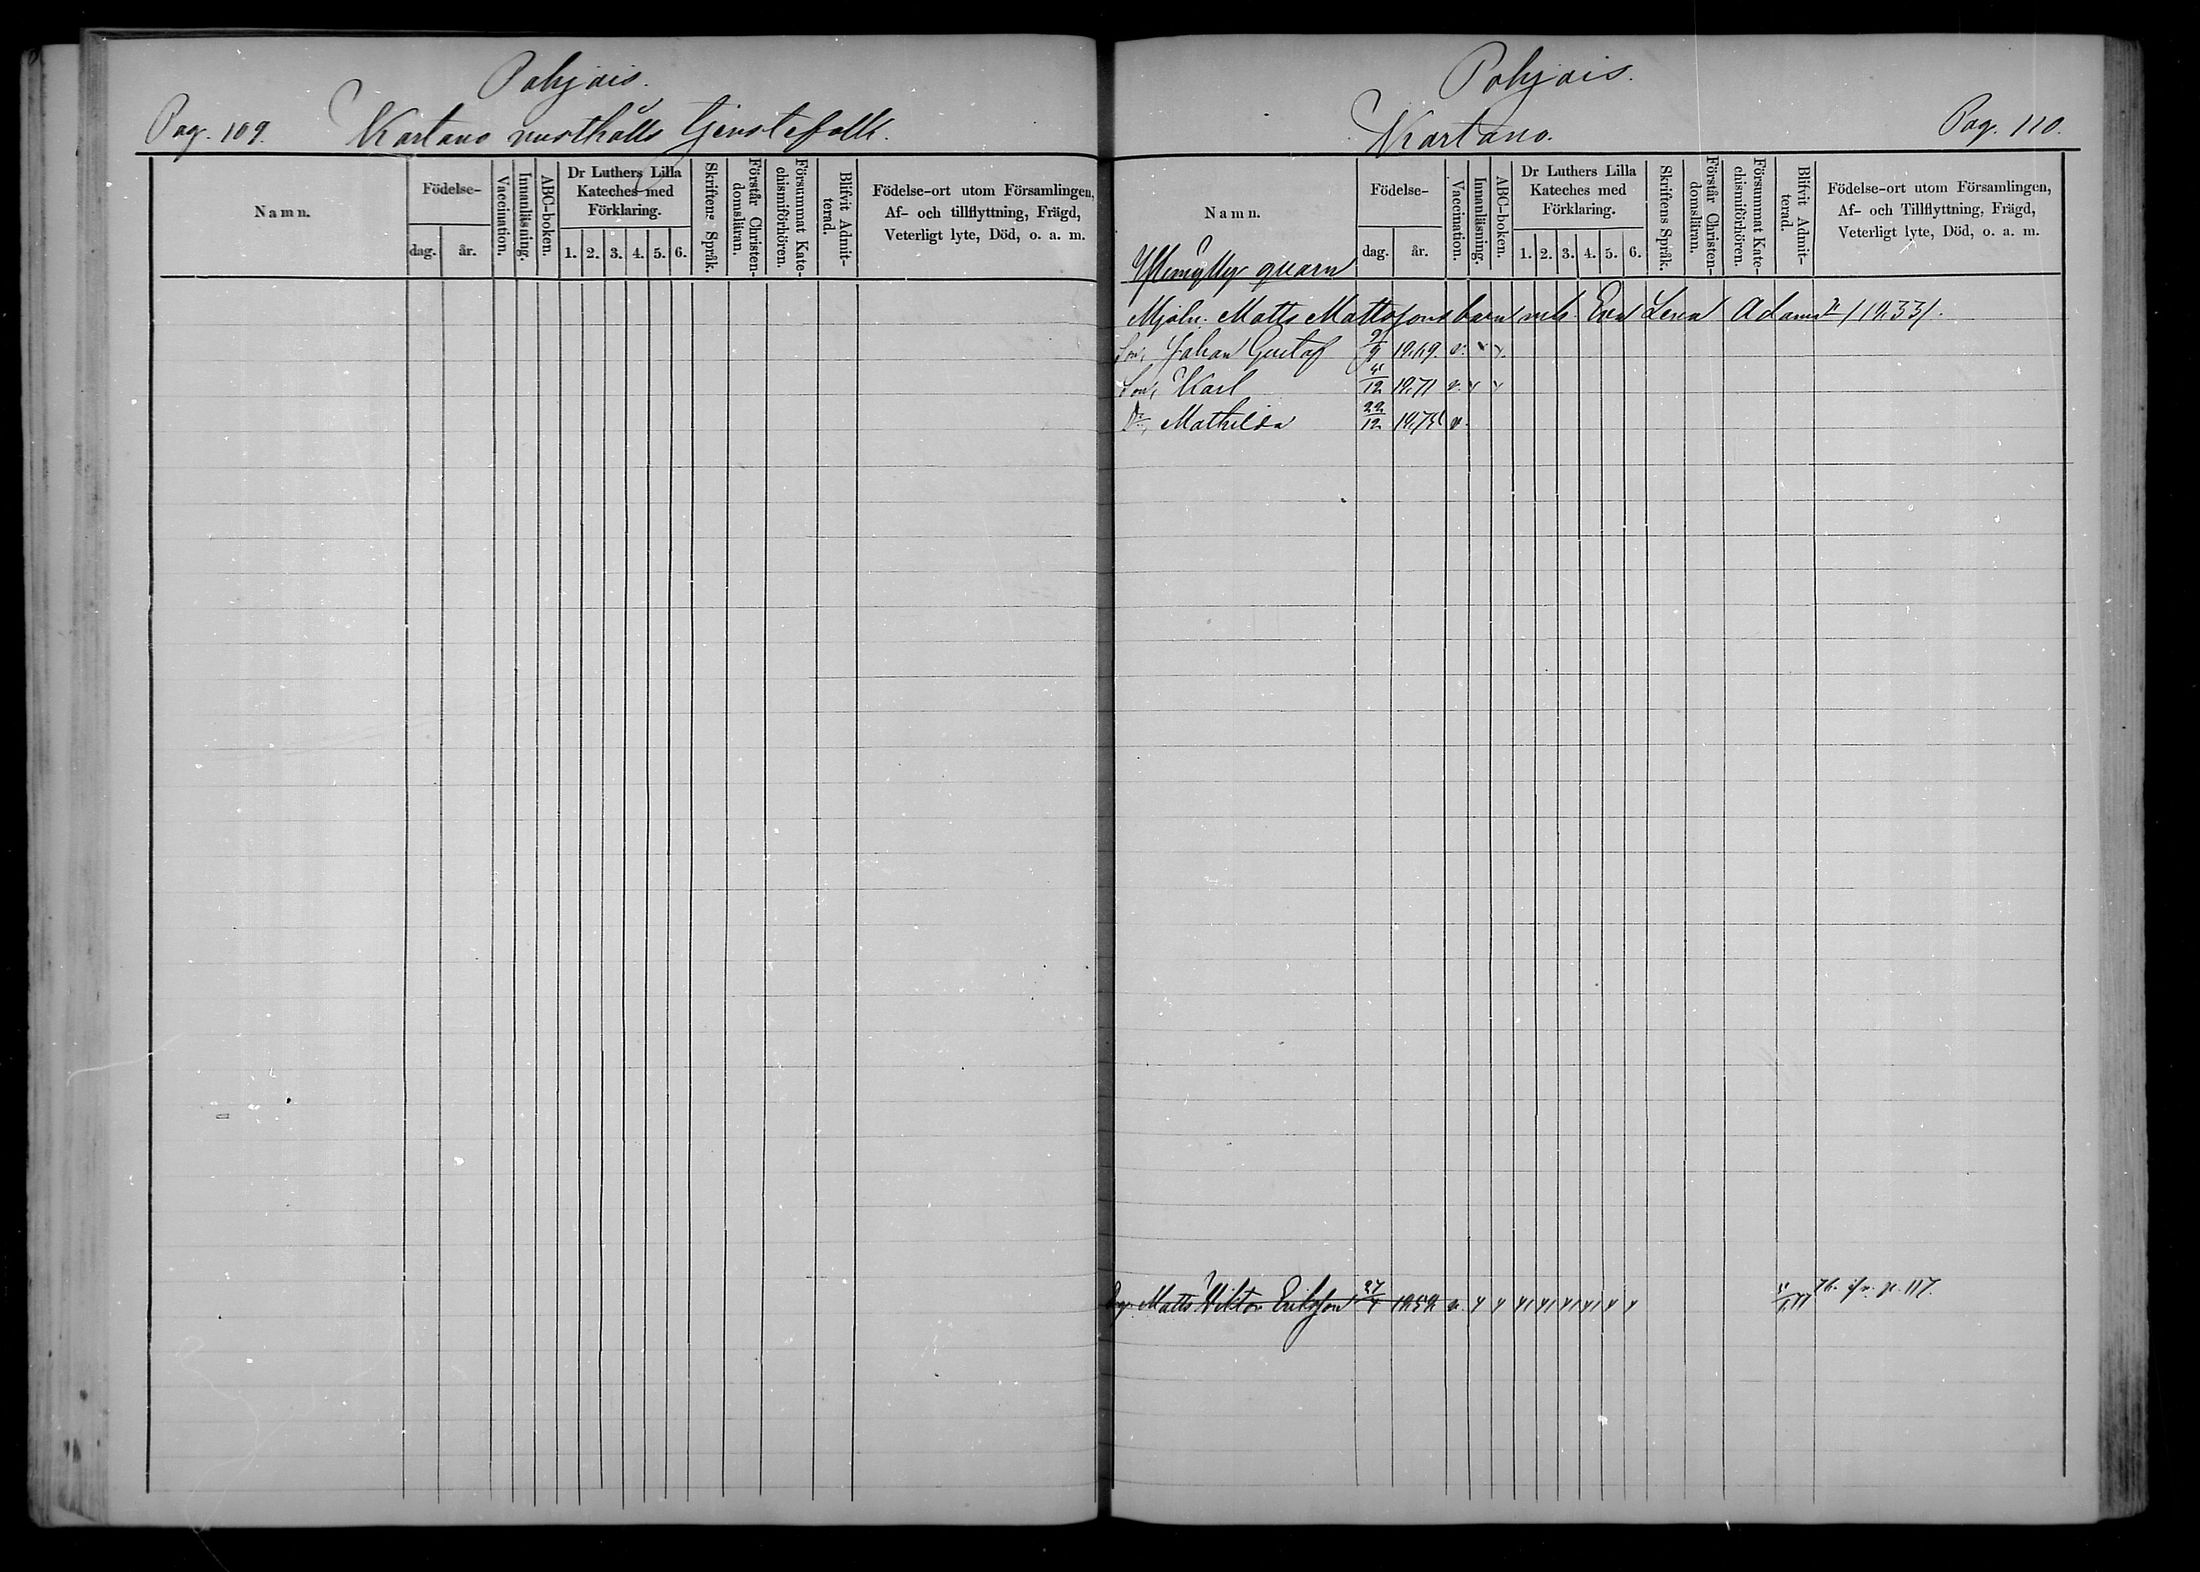 Pohjois.
Pag. 109. Kartano rusthålls tjenstefolk.
Namn.
Födelse-
dag. år.
Vaccination.
Innanläsning.
ABC-boken.
Dr Luthers Lilla
Kateches med
Förklaring.
1. 2. 3. 4. 5. 6.
Skriftens Språk.
Förstår Christen-
domsläran.
Försummat Kate-
chismiförhören.
Blifvit Admit-
terad.
Födelse-ort utom Församlingen,
Af- och tillflyttning, Frägd,
Veterligt lyte, Död, o. a. m.
Pohjois.
Kartano. Pag. 110.
Namn.
Födelse-
dag. år.
Vaccination.
Innanläsning.
ABC-boken.
Dr Luthers Lilla
Kateches med
Förklaring.
1. 2. 3. 4. 5. 6.
Skriftens Språk.
Förstår Christen-
domsläran.
Försummat Kate-
chismiförhören.
Blifvit Admit-
terad.
Födelse-ort utom Församlingen,
Af- och Tillflyttning, Frägd,
Veterligt lyte, Död, o. a. m.
quarn
Mjöln. Matts Mattssons barn med Eva Lena Adamsd /1833/.
Son, Johan Gustaf 1869 v. x x
Son, Karl 1871 v. x x
Dr, Mathilda 22/12 v.
Matts Viktor Eriksson 27/4 v. x x x x x x x x p. 117.